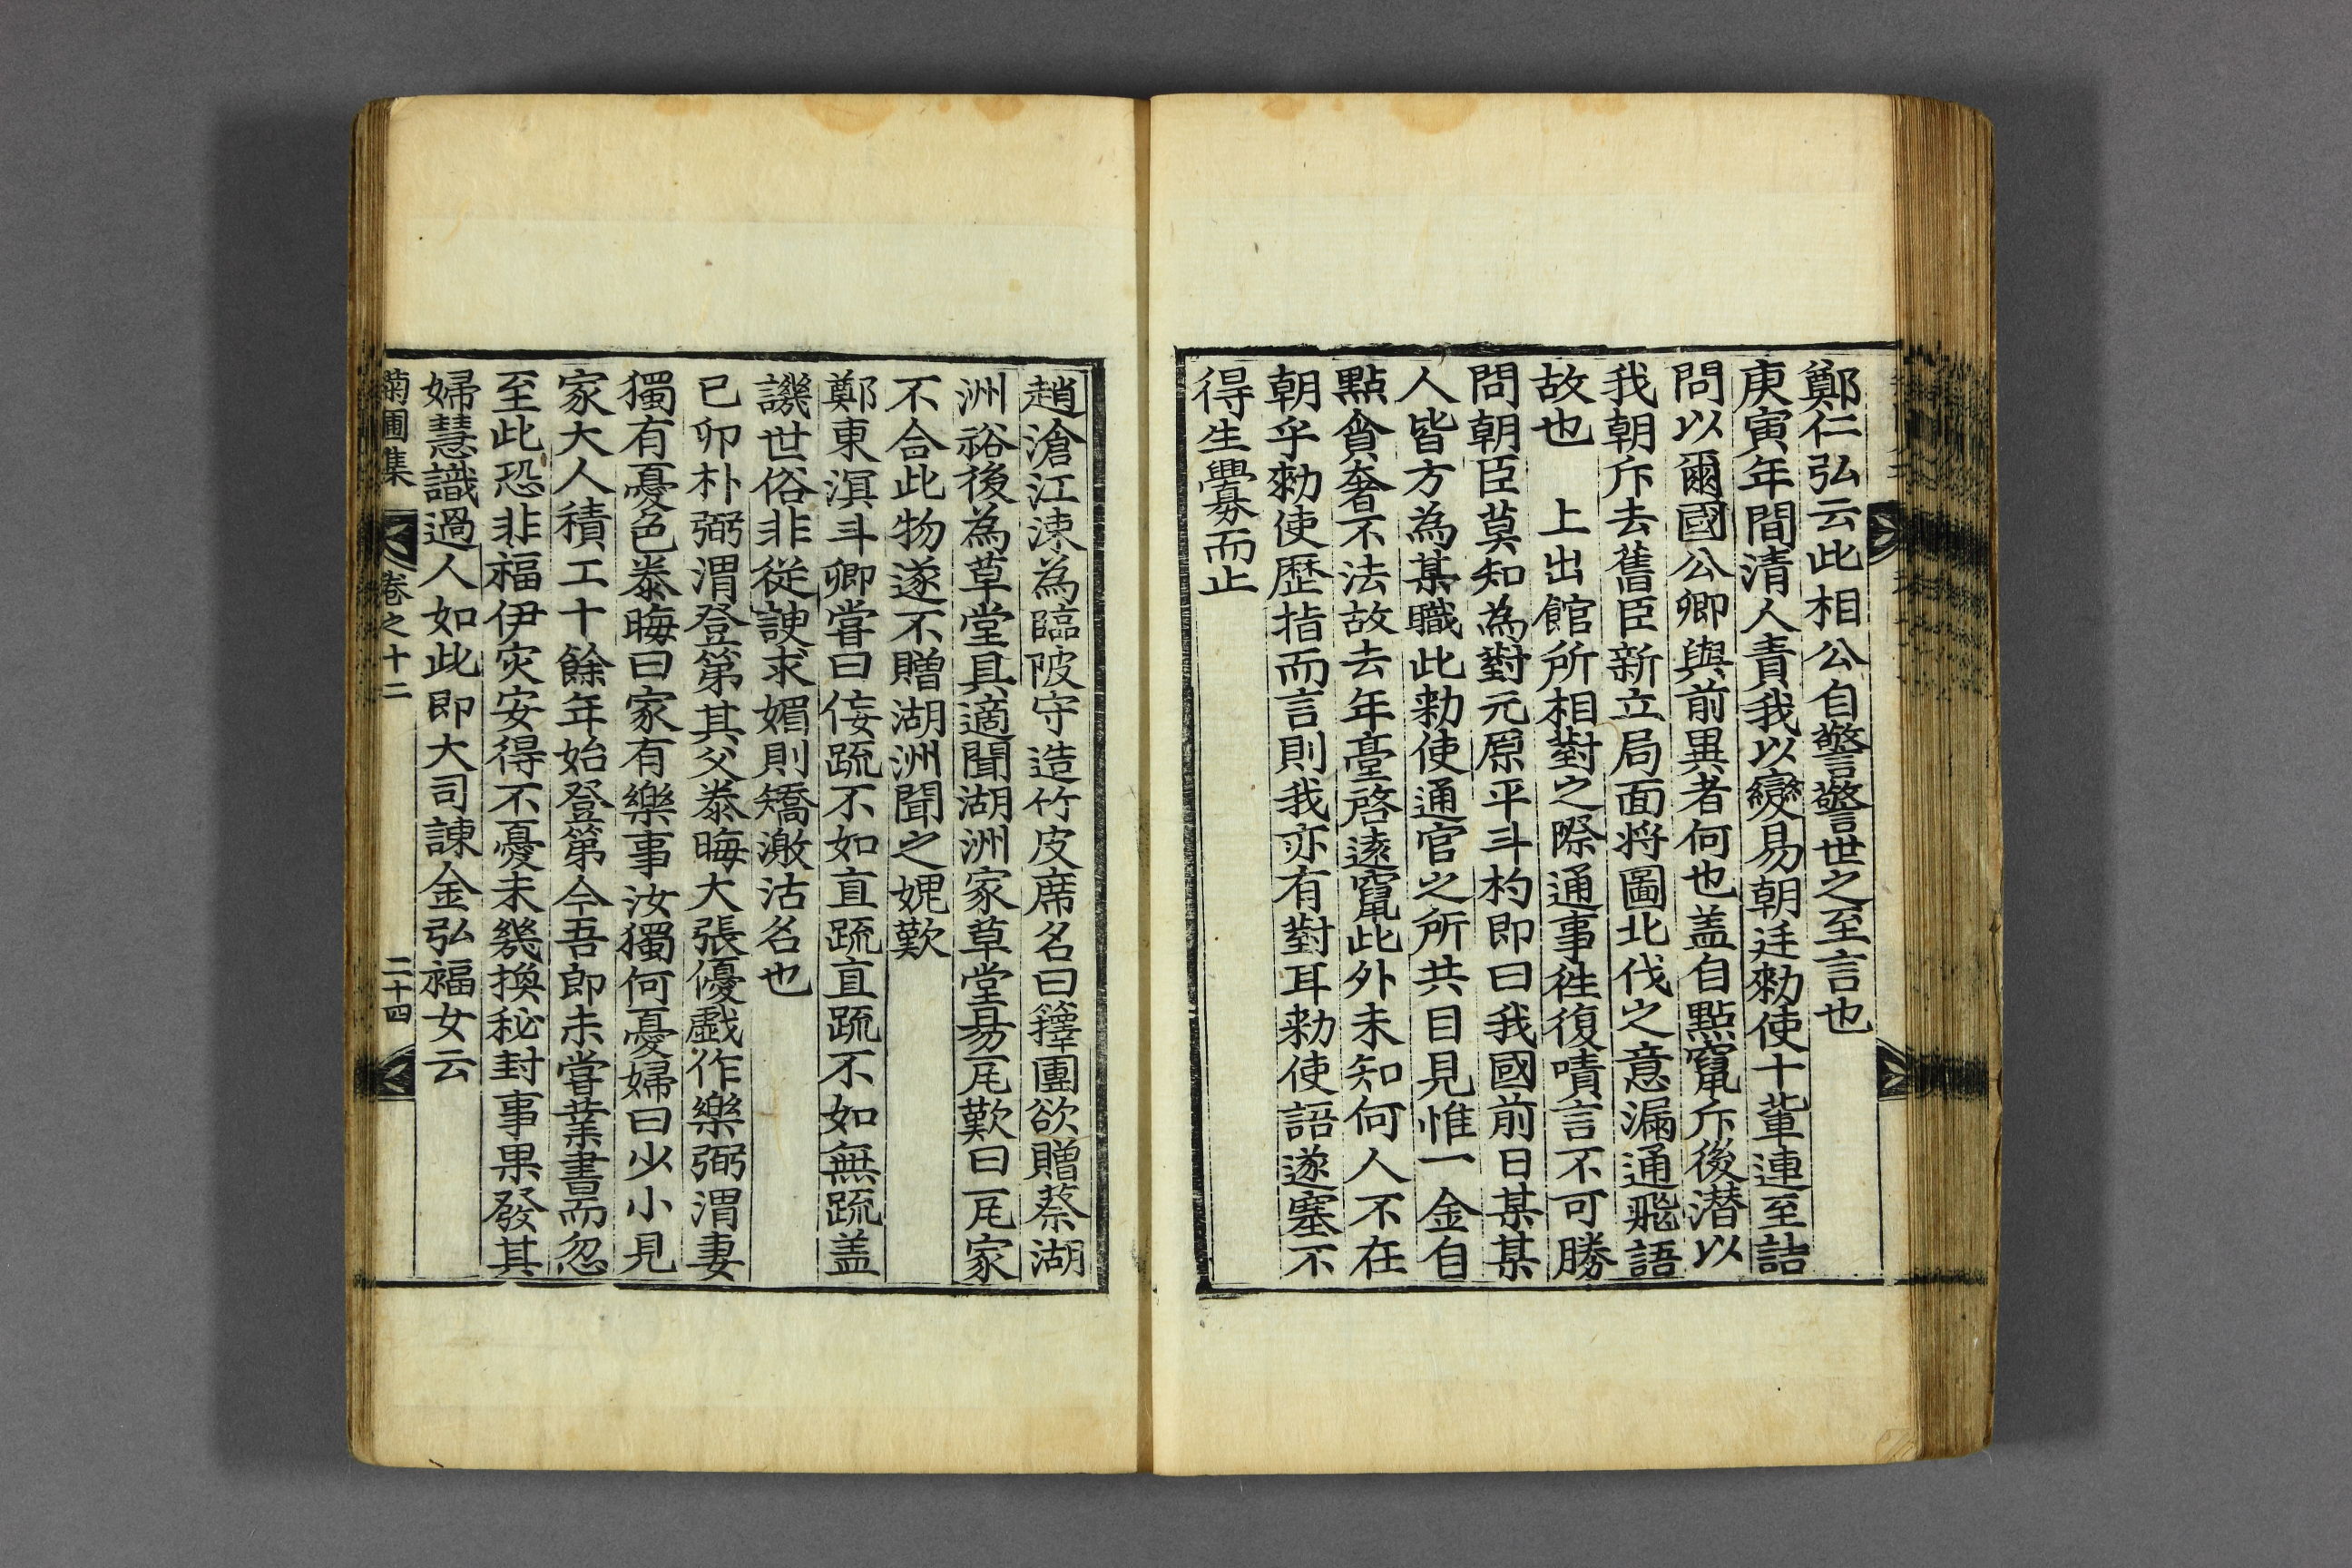 鄭仁弘云此相公自警警世之至言也
庚寅年間清人責我以變易朝廷勑使十輩連至詰
問以爾國公卿與前異者何也盖自點竄斥後潜以
我朝斥去舊臣新立局面将圖北伐之意漏通飛語
故也　上出館所相對之際通事徃復嘖言不可勝
問朝臣莫知為對元原平斗杓即曰我國前日某某
人皆方為某職此勑使通官之所共目見惟一金自
點貪奢不法故去年臺啓逺竄此外未知何人不在
朝乎勑使歷指而言則我亦有對耳勑使語遂塞不
得生釁而止
趙滄江涑為臨陂守造竹皮席名曰籜團欲贈蔡湖
洲裕後為草堂具適聞湖洲家草堂易瓦歎曰瓦家
不合此物遂不贈湖洲聞之媿歎
鄭東溟斗卿嘗曰侫䟽不如直䟽直䟽不如無䟽盖
譏世俗非従諛求媚則矯激沽名也
已卯朴弼渭登第其父泰晦大張優戯作樂弼渭妻
獨有憂色泰晦曰家有樂事汝獨何憂婦曰少小見
家大人積工十餘年始登第今吾郎未嘗業書而忽
至此恐非福伊灾安得不憂未幾換秘封事果發其
婦慧識過人如此即大司諫金弘福女云
菊圃集　卷之十二　二十四